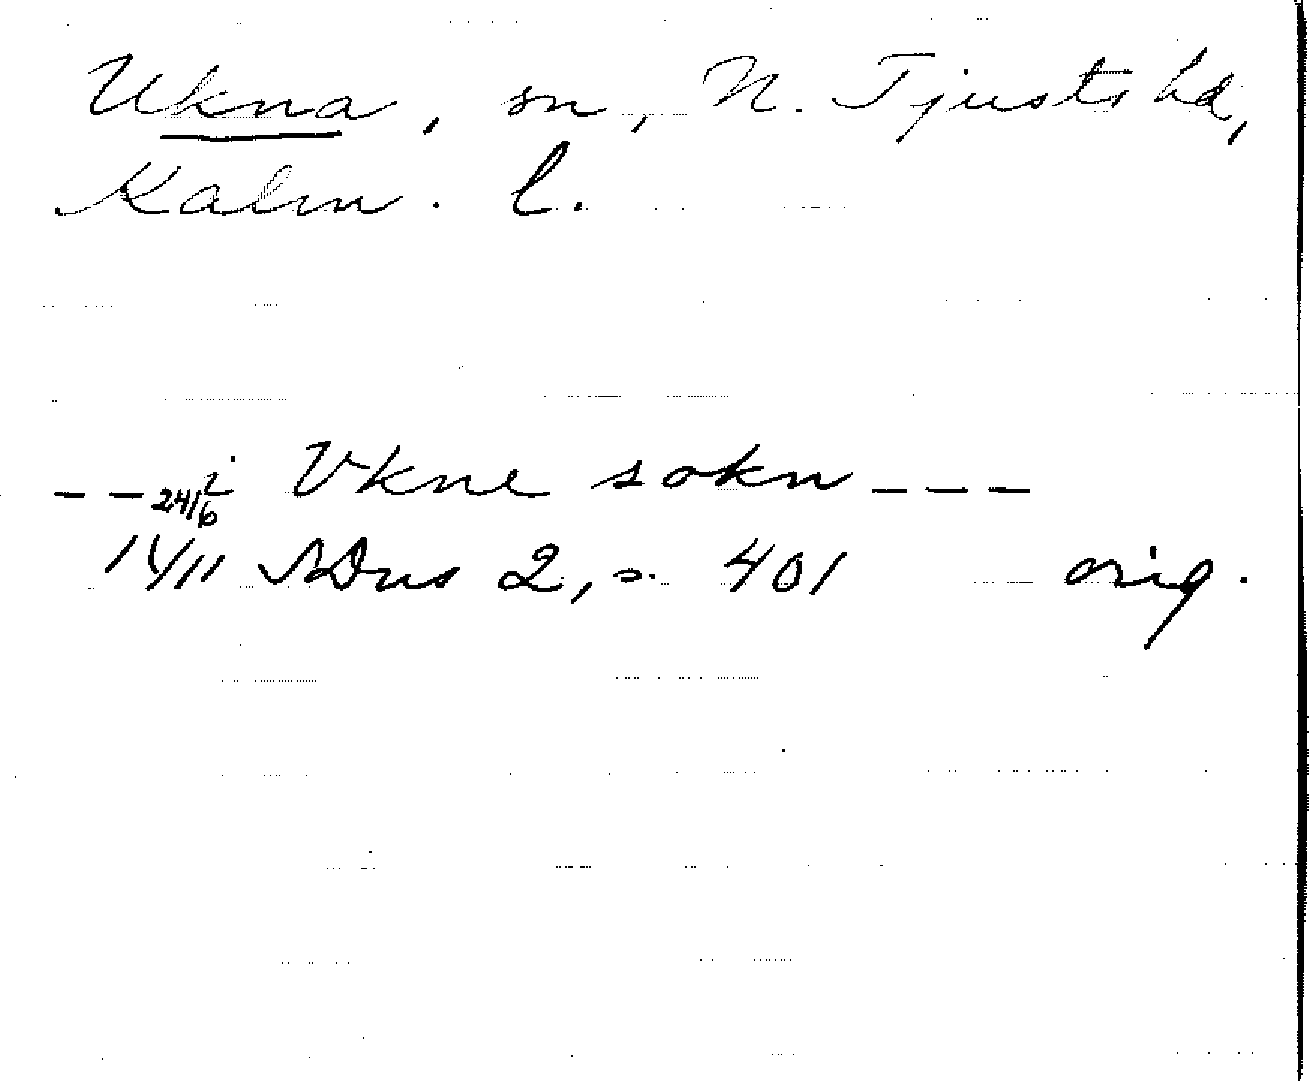 Ukna, sn, N. Tjusts hd,
Kalm. l.
--- i Vkne sokn ---
24/6
1411 SDns 2, s. 401 orig.